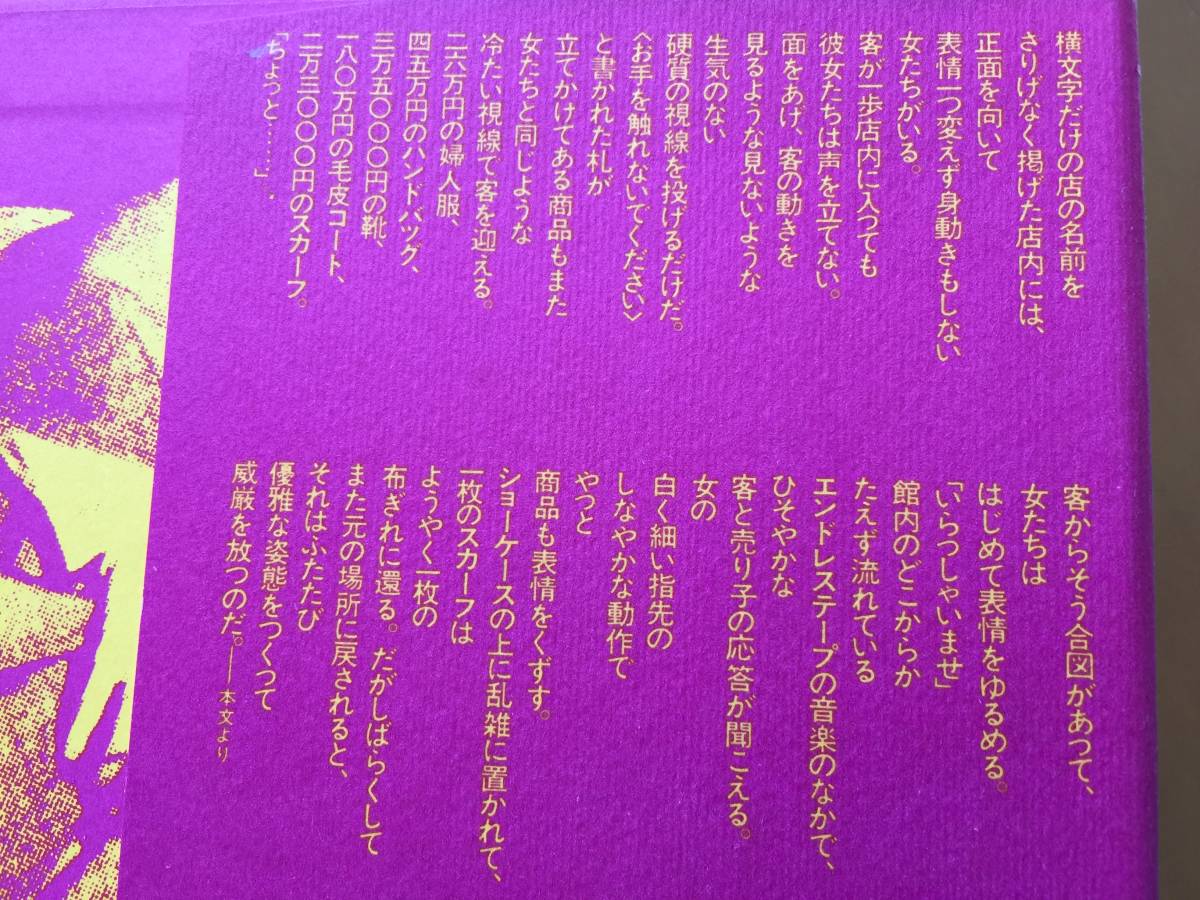 横文字だけの店の名前を
さりげなく掲げた店内には、
正面を向いて
表情一つ変えず身動きもしない
女たちがいる。
客が一歩店内に入っても
彼女たちは声を立てない。
面をあげ、客の動きを
見るような見ないような
生気のない
硬質の視線を投げるだけだ。
〈お手を触れないでください〉
と書かれた札が
立てかけてある商品もまた
女たちと同じような
冷たい視線で客を迎える。
二六万円の婦人服、
四五万円のハンドバッグ、
三万五〇〇〇円の靴、
一八〇万円の毛皮コート、
二万三〇〇〇円のスカーフ。
「ちょっと……」。
客からそう合図があって、
女たちは
はじめて表情をゆるめる。
「いらっしゃいませ」
館内のどこからか
たえず流れている
エンドレステープの音楽のなかで、
ひそやかな
客と売り子の応答が聞こえる。
女の
白く細い指先の
しなやかな動作で
やっと
商品も表情をくずす。
ショーケースの上に乱雑に置かれて、
一枚のスカーフは
ようやく一枚の
布ぎれに還る。だがしばらくして
また元の場所に戻されると、
それはふたたび
優雅な姿態をつくって
威厳を放つのだ。——本文より